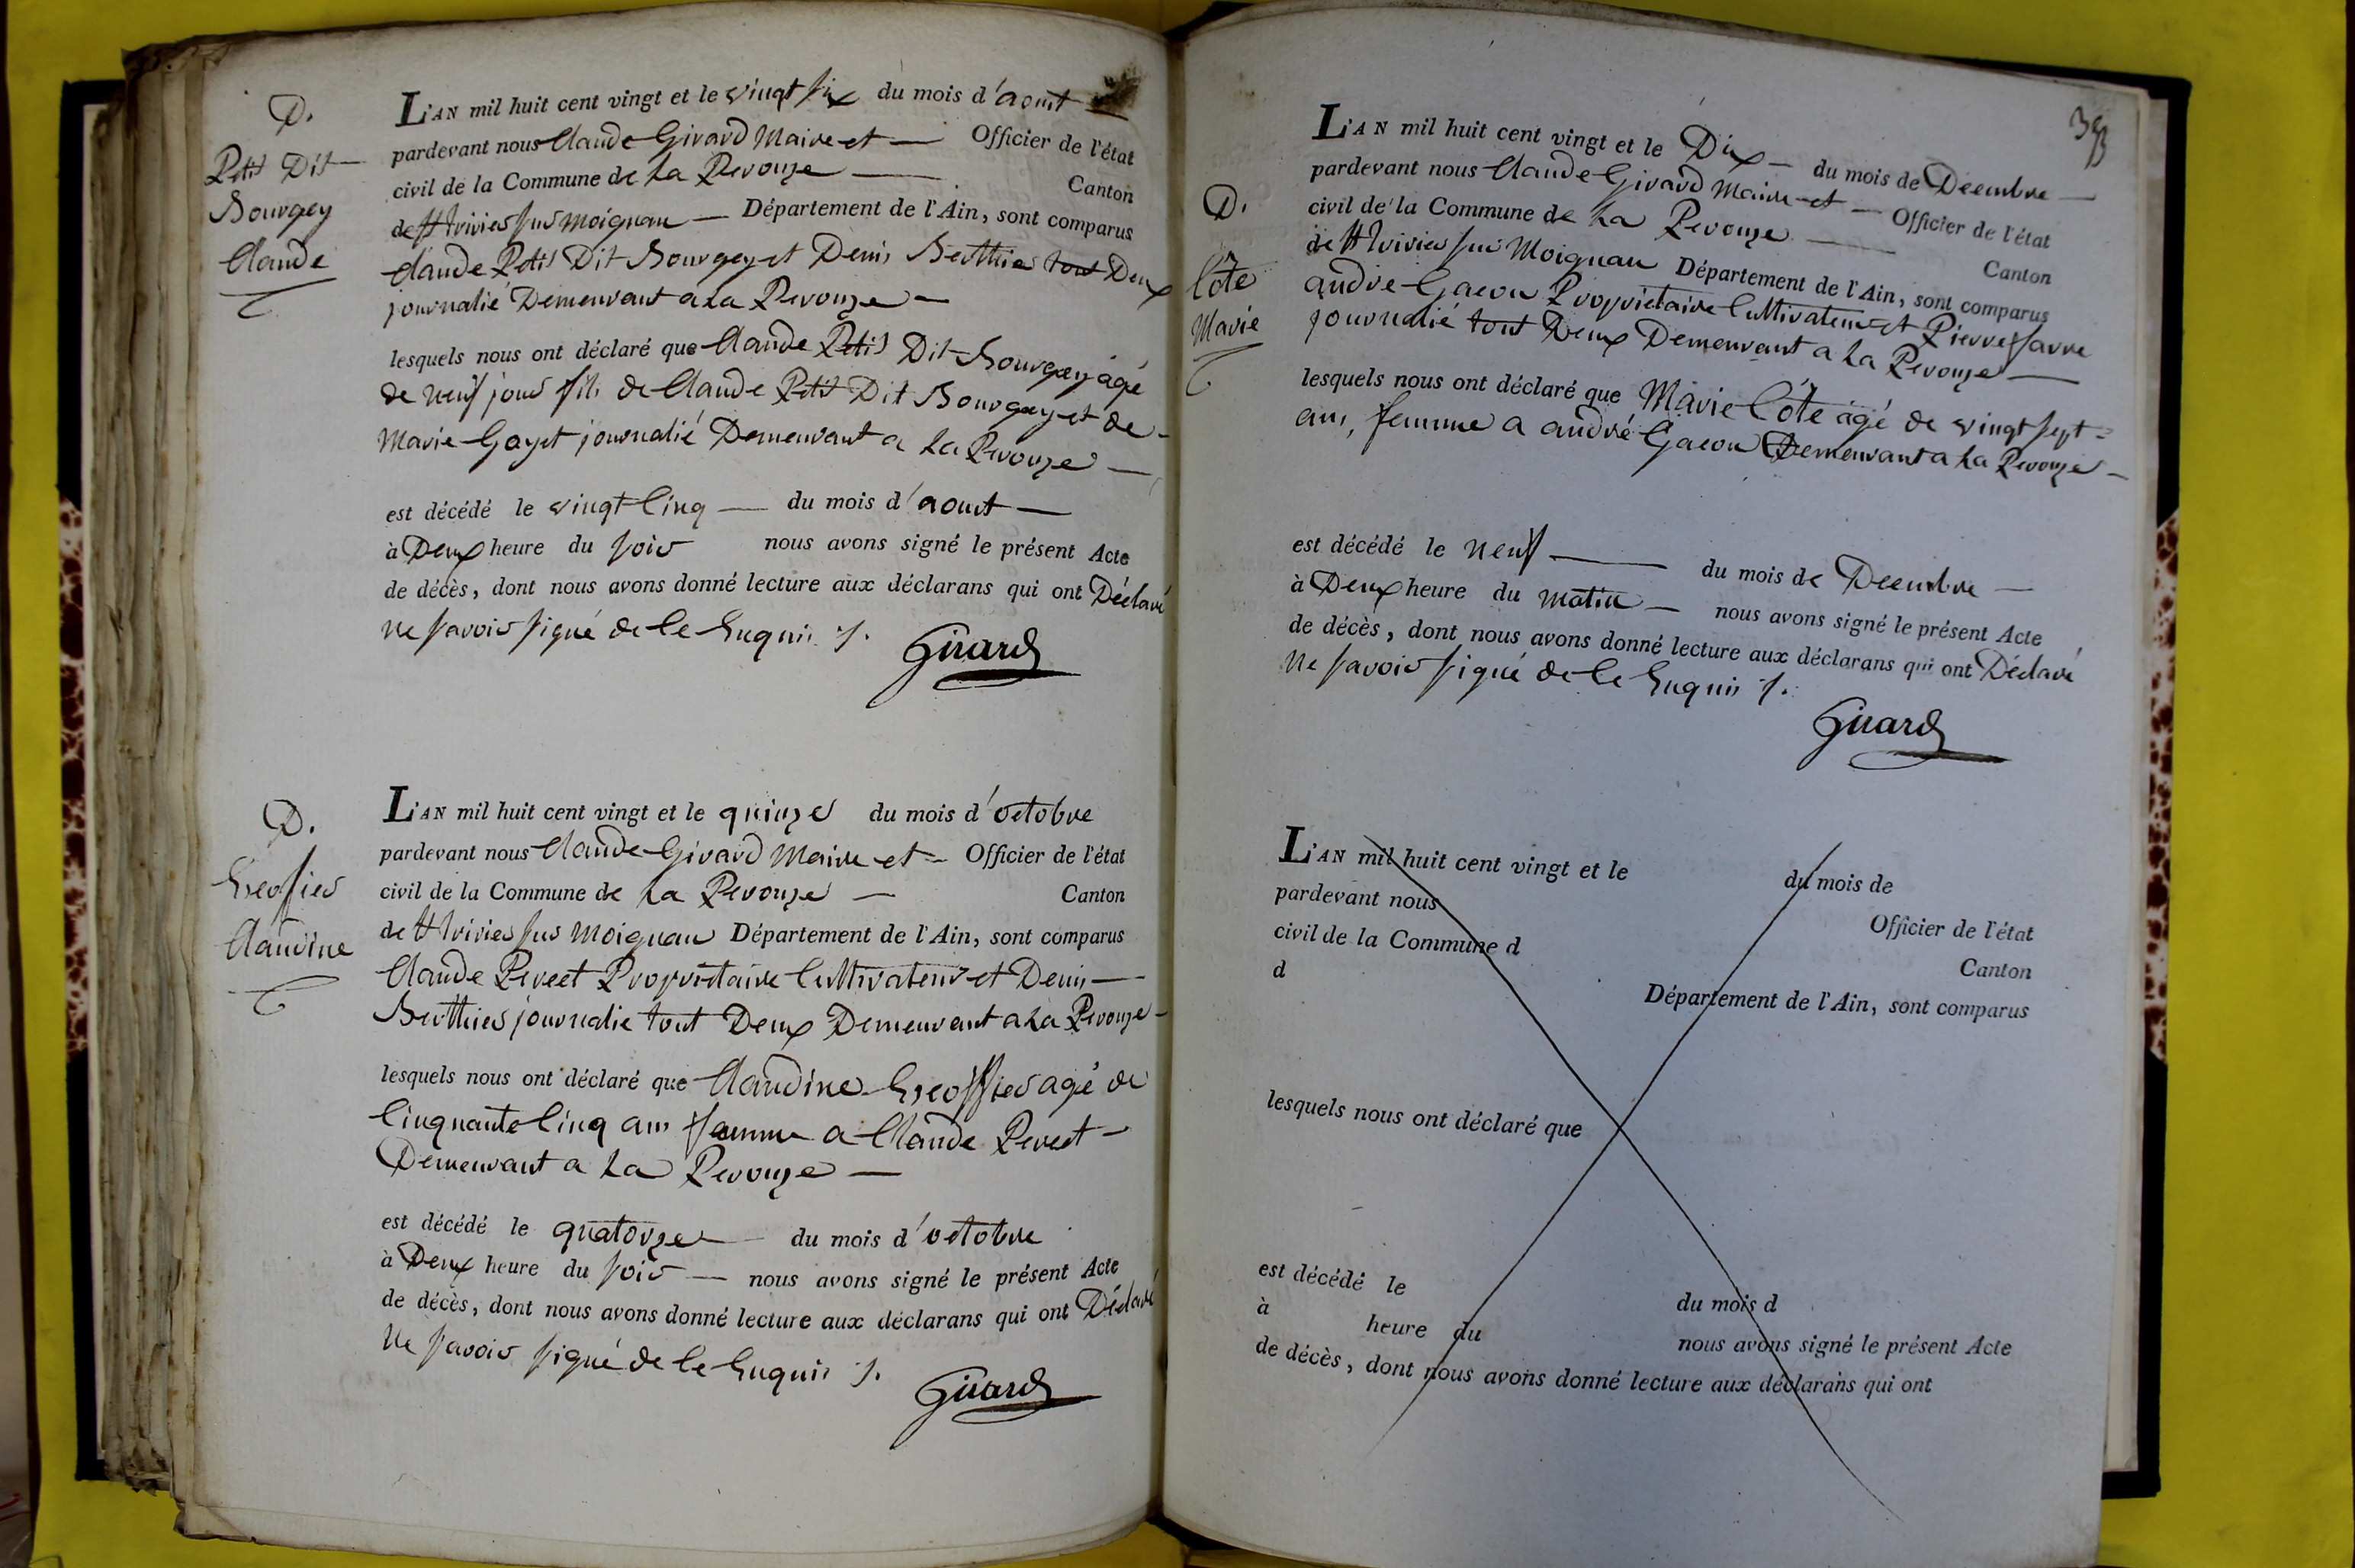 D.
Petit Dit
Bourgey
Claude
L'AN mil huit cent vingt et le vingt six du mois d'aout
pardevant nous Claude Girard Maire et Officier de l'état
civil de la Commune de La Perouze Canton
de St trivier sur moignan Département de l'Ain, sont comparus
Claude Petit Dit Bourgey et Denis Berthier tout Deux
journalié Demeurant a La Perouze
lesquels nous ont déclaré que Claude Petit Dit Bourgey agé
de neuf jour fils de Claude Petit Dit Bourgey et de
Marie Gayet journalié Demeurant a La Perouze
est décédé le vingt Cinq du mois d'aout
à Deux heure du soir nous avons signé le présent Acte
de décès, dont nous avons donné lecture aux déclarans qui ont Déclaré
ne savoir signé de Ce Enquis
Girard
D.
Claudine
L'AN mil huit cent vingt et le quinze du mois d'octobre
pardevant nous Claude Girard Maire et Officier de l'état
civil de la Commune de La Perouze Canton
de St trivier sur Moignan Département de l'Ain, sont comparus
Claude Proprietaire Cultivateur et Denis
Berthier journalie tout Deux Demeurant a La Perouze
lesquels nous ont déclaré que Claudine agé de
Cinquante Cinq ans femme a Claude
Demeurant a La Perouze
est décédé le quatorze du mois d'octobre
à Deux heure du soir nous avons signé le présent Acte
de décès, dont nous avons donné lecture aux déclarans qui ont Déclaré
ne savoir signé de Ce Enquis
Girard
D.
Côte
Marie
L'AN mil huit cent vingt et le Dix du mois de Decembre
pardevant nous Claude Girard Maire et Officier de l'état
civil de la Commune de La Perouze Canton
de St trivier sur Moignan Département de l'Ain, sont comparus
andre Gacon Proprietaire Cultivateur et Pierre favre
journalié tout Deux Demeurant a La Perouze
lesquels nous ont déclaré que Marie Côte agé de vingt sept
ans, femme a andré Gacon Demeurant a La Perouze
est décédé le neuf du mois de Decembre
à Deux heure du matin nous avons signé le présent Acte
de décès, dont nous avons donné lecture aux déclarans qui ont Déclaré
ne savoir signé de Ce Enquis
Girard
L'AN mil huit cent vingt et le du mois de
pardevant nous Officier de l'état
civil de la Commune d Canton
d Département de l'Ain, sont comparus
lesquels nous ont déclaré que
est décédé le du mois d
à heure du nous avons signé le présent Acte
de décès, dont nous avons donné lecture aux déclarans qui ont